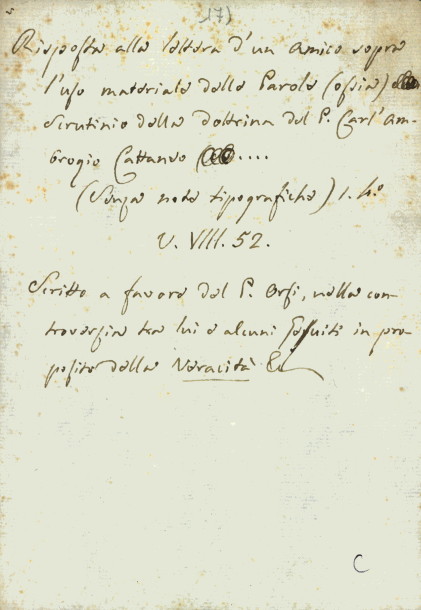 s
17)
Risposta alla lettera d'un Amico sopra
l'uso materiale delle Parole (ossia)
Scrutinio della dottrina del P. Carl'Am-
brogio Cattaneo ....
(Senza note tipografiche) 1. 4.o
V. VIII. 52.
Scritto a favore del P. Orsi, nella con-
troversia tra lui e alcuni Gesuiti in pro-
posito della Veracità &
C